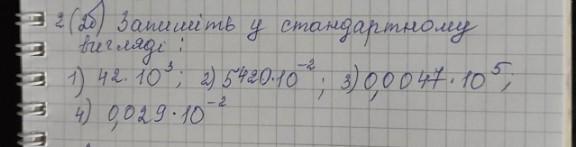 2 (2б) Запишіть у стандартному
вигляді:
1) 42·10³; 2) 5420·10⁻²; 3) 0,0047·10⁵;
4) 0,029·10⁻²